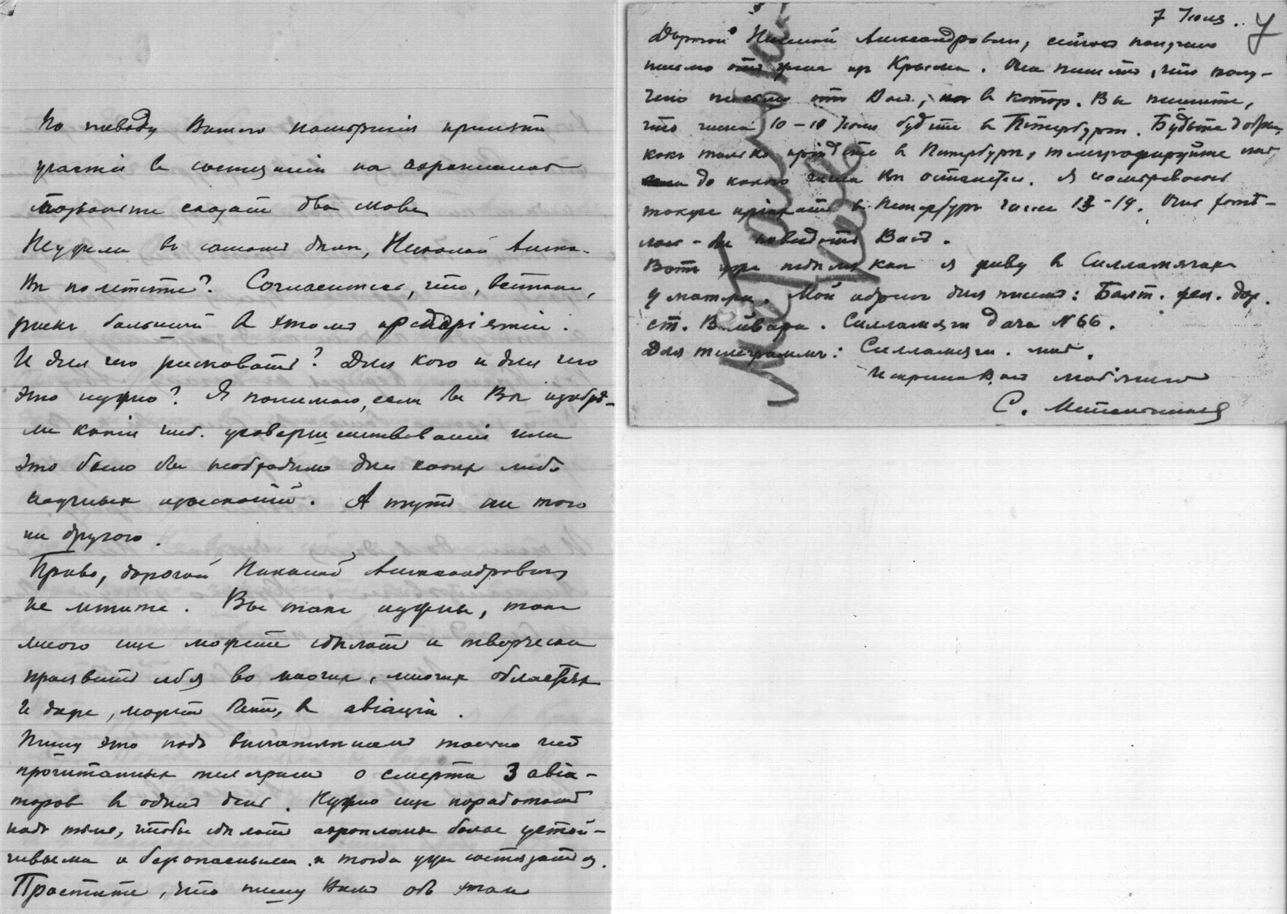 По поводу Вашего намѣренія принять
участіе въ состязаніи на аэропланахъ
позвольте сказать два слова
Неужели въ самомъ дѣлѣ, Николай Алекса.
Вы полетите? Согласитесь, что, всетаки,
рискъ большой въ этомъ предпріятіи.
И для чего рисковать? Для кого и для чего
это нужно? Я понимаю, если бы Вы изобрѣ-
ли какія ниб. усовершенствованія или
это было бы необходимо для какихъ либо
научныхъ изысканій. А тутъ ни того
ни другого.
Право, дорогой Николай Александровичъ
не летите. Вы такъ нужны, такъ
много еще можете сдѣлать и творчески
проявить себя во многихъ, многихъ областяхъ
И даже, можетъ быть, въ авіаціи.
Пишу это подъ впечатлѣніемъ только что
прочитанныхъ телеграмъ о смерти 3 авіа-
торовъ въ одинъ день. Нужно еще поработать
надъ тѣмъ, чтобы сдѣлать аэропланы болѣе устой-
чивыми и безопасными и тогда уже состязаться.
Простите, что пишу Вамъ объ этомъ
7 Іюня.
Дорогой Николай Александровичъ, сейчасъ получилъ
письмо отъ жены изъ Крыма. Она пишетъ, что полу-
чено письмо отъ Васъ, въ котор. Вы пишите,
что числа 10-18 Іюня будете въ Петербургѣ. Будьте добры,
какъ только пріѣдете въ Петербургъ, телеграфируйте мнѣ
до какого числа Вы останетесь. Я намѣреваюсь
также пріѣхать въ Петербургъ числа 13-14. Очень желат-
лось-бы повидать Васъ.
Вотъ уже недѣля какъ я живу въ Силламягахъ
у матери. Мой адресъ для писемъ: Балт. жел. дор.
ст. Вайвара. Силламяги дача № 66.
Для телеграммъ: Силламяги. мнѣ.
Искренно Васъ любящій
С.